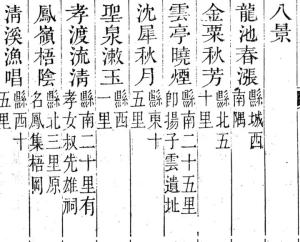 八景
龍池春漲 縣城西南隅
金粟秋芳 縣北五十里
雲亭曉煙 縣南二十五里卽揚子雲遺址
沈犀秋月 縣東十五里
聖泉漱玉 縣西一里
孝渡流清 縣南二十里有孝女叔先雄祠
鳳嶺梧陰 縣北三里原名鳳集梧岡
清溪漁唱 縣西十五里